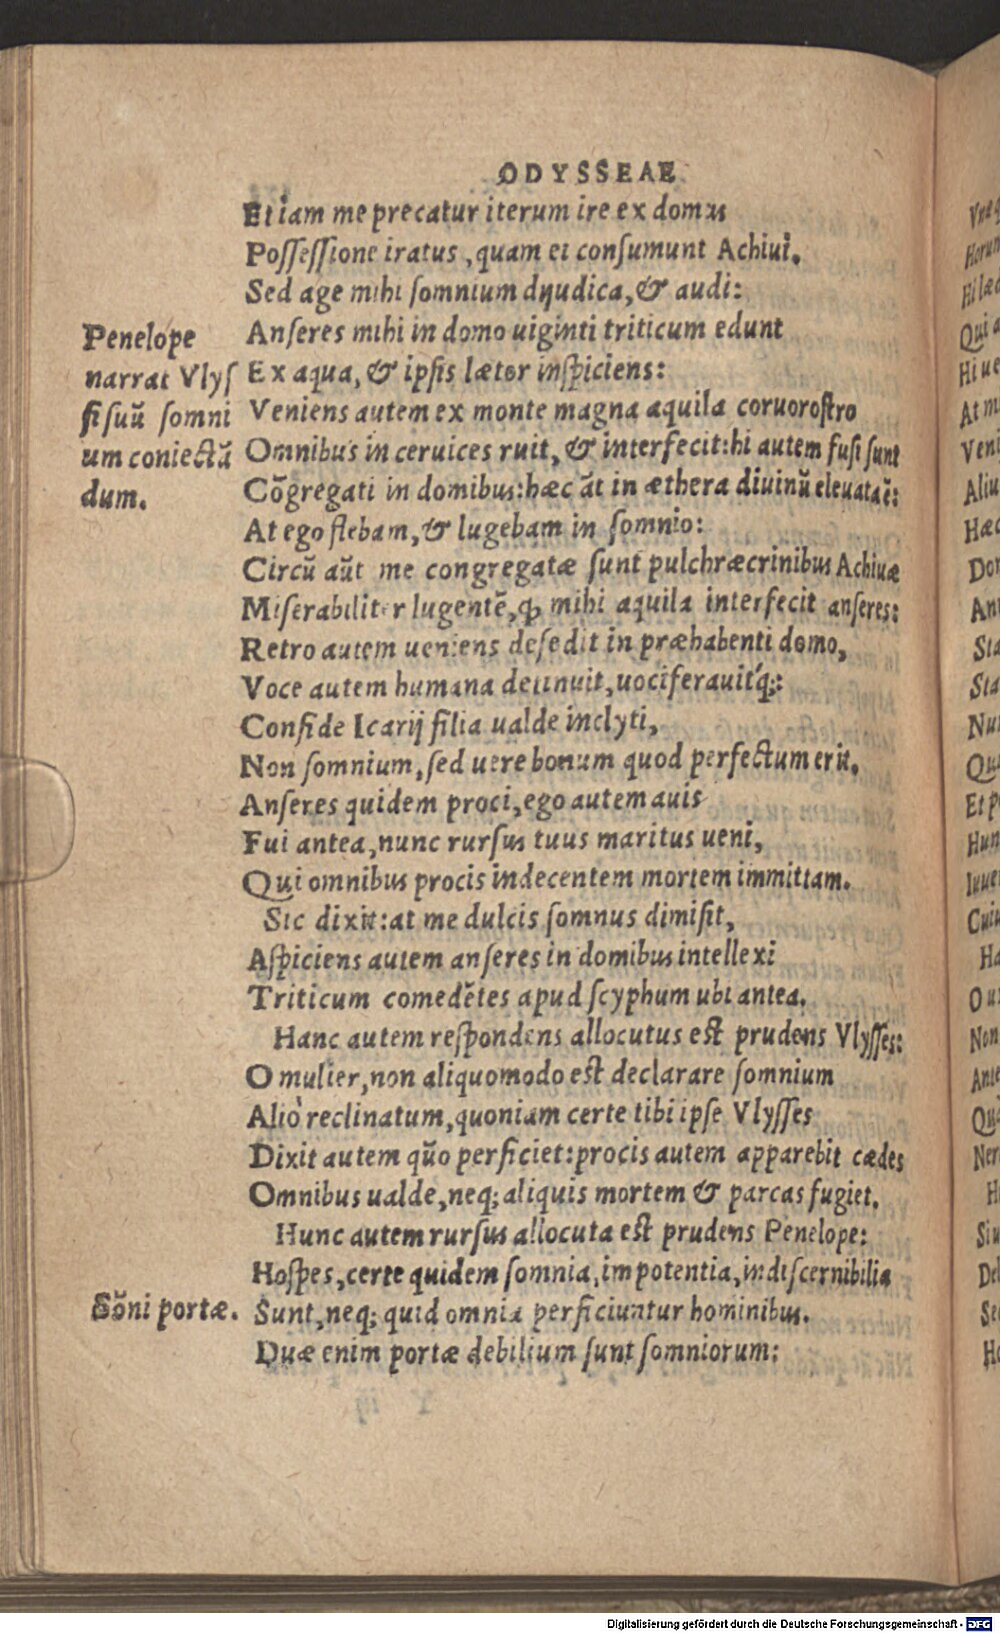 ODYSSEAE
Etiam me precatur iterum ire ex domus
Possessione iratus, quam ei consumunt Achiui.
Sed age mihi somnium dijudica, & audi:
Anseres mihi in domo uiginti triticum edunt
Ex aqua, & ipsis lætor inspiciens:
Veniens autem ex monte magna aquila coruorostro
Omnibus in ceruices ruit, & interfecit: hi autem fusi sunt
Cōgregati in domibus: hæc āt in æthera diuinū eleuata ē:
At ego flebam, & lugebam in somnio:
Circū aūt me congregatæ sunt pulchræcrinibus Achiuæ
Miserabiliter lugentē, ꝙ mihi aquila interfecit anseres:
Retro autem ueniens desedit in præhabenti domo,
Voce autem humana detinuit, uociferauitq́;:
Confide Icarij filia ualde inclyti,
Non somnium, sed uere bonum quod perfectum erit.
Anseres quidem proci, ego autem auis
Fui antea, nunc rursus tuus maritus ueni,
Qui omnibus procis indecentem mortem immittam.
Sic dixit: at me dulcis somnus dimisit,
Aspiciens autem anseres in domibus intellexi
Triticum comedētes apud scyphum ubi antea.
Hanc autem respondens allocutus est prudens Vlysses:
O mulier, non aliquomodo est declarare somnium
Aliò reclinatum, quoniam certe tibi ipse Vlysses
Dixit autem quō perficiet: procis autem apparebit cædes
Omnibus ualde, neq; aliquis mortem & parcas fugiet.
Hunc autem rursus allocuta est prudens Penelope:
Hospes, certe quidem somnia, impotentia, indiscernibilia
Sunt, neq; quid omnia perficiuntur hominibus.
Duæ enim portæ debilium sunt somniorum:
Penelope
narrat Vlys
si suū somni
um coniectā
dum.
Sōni portæ.
Digitalisierung gefördert durch die Deutsche Forschungsgemeinschaft - DFG